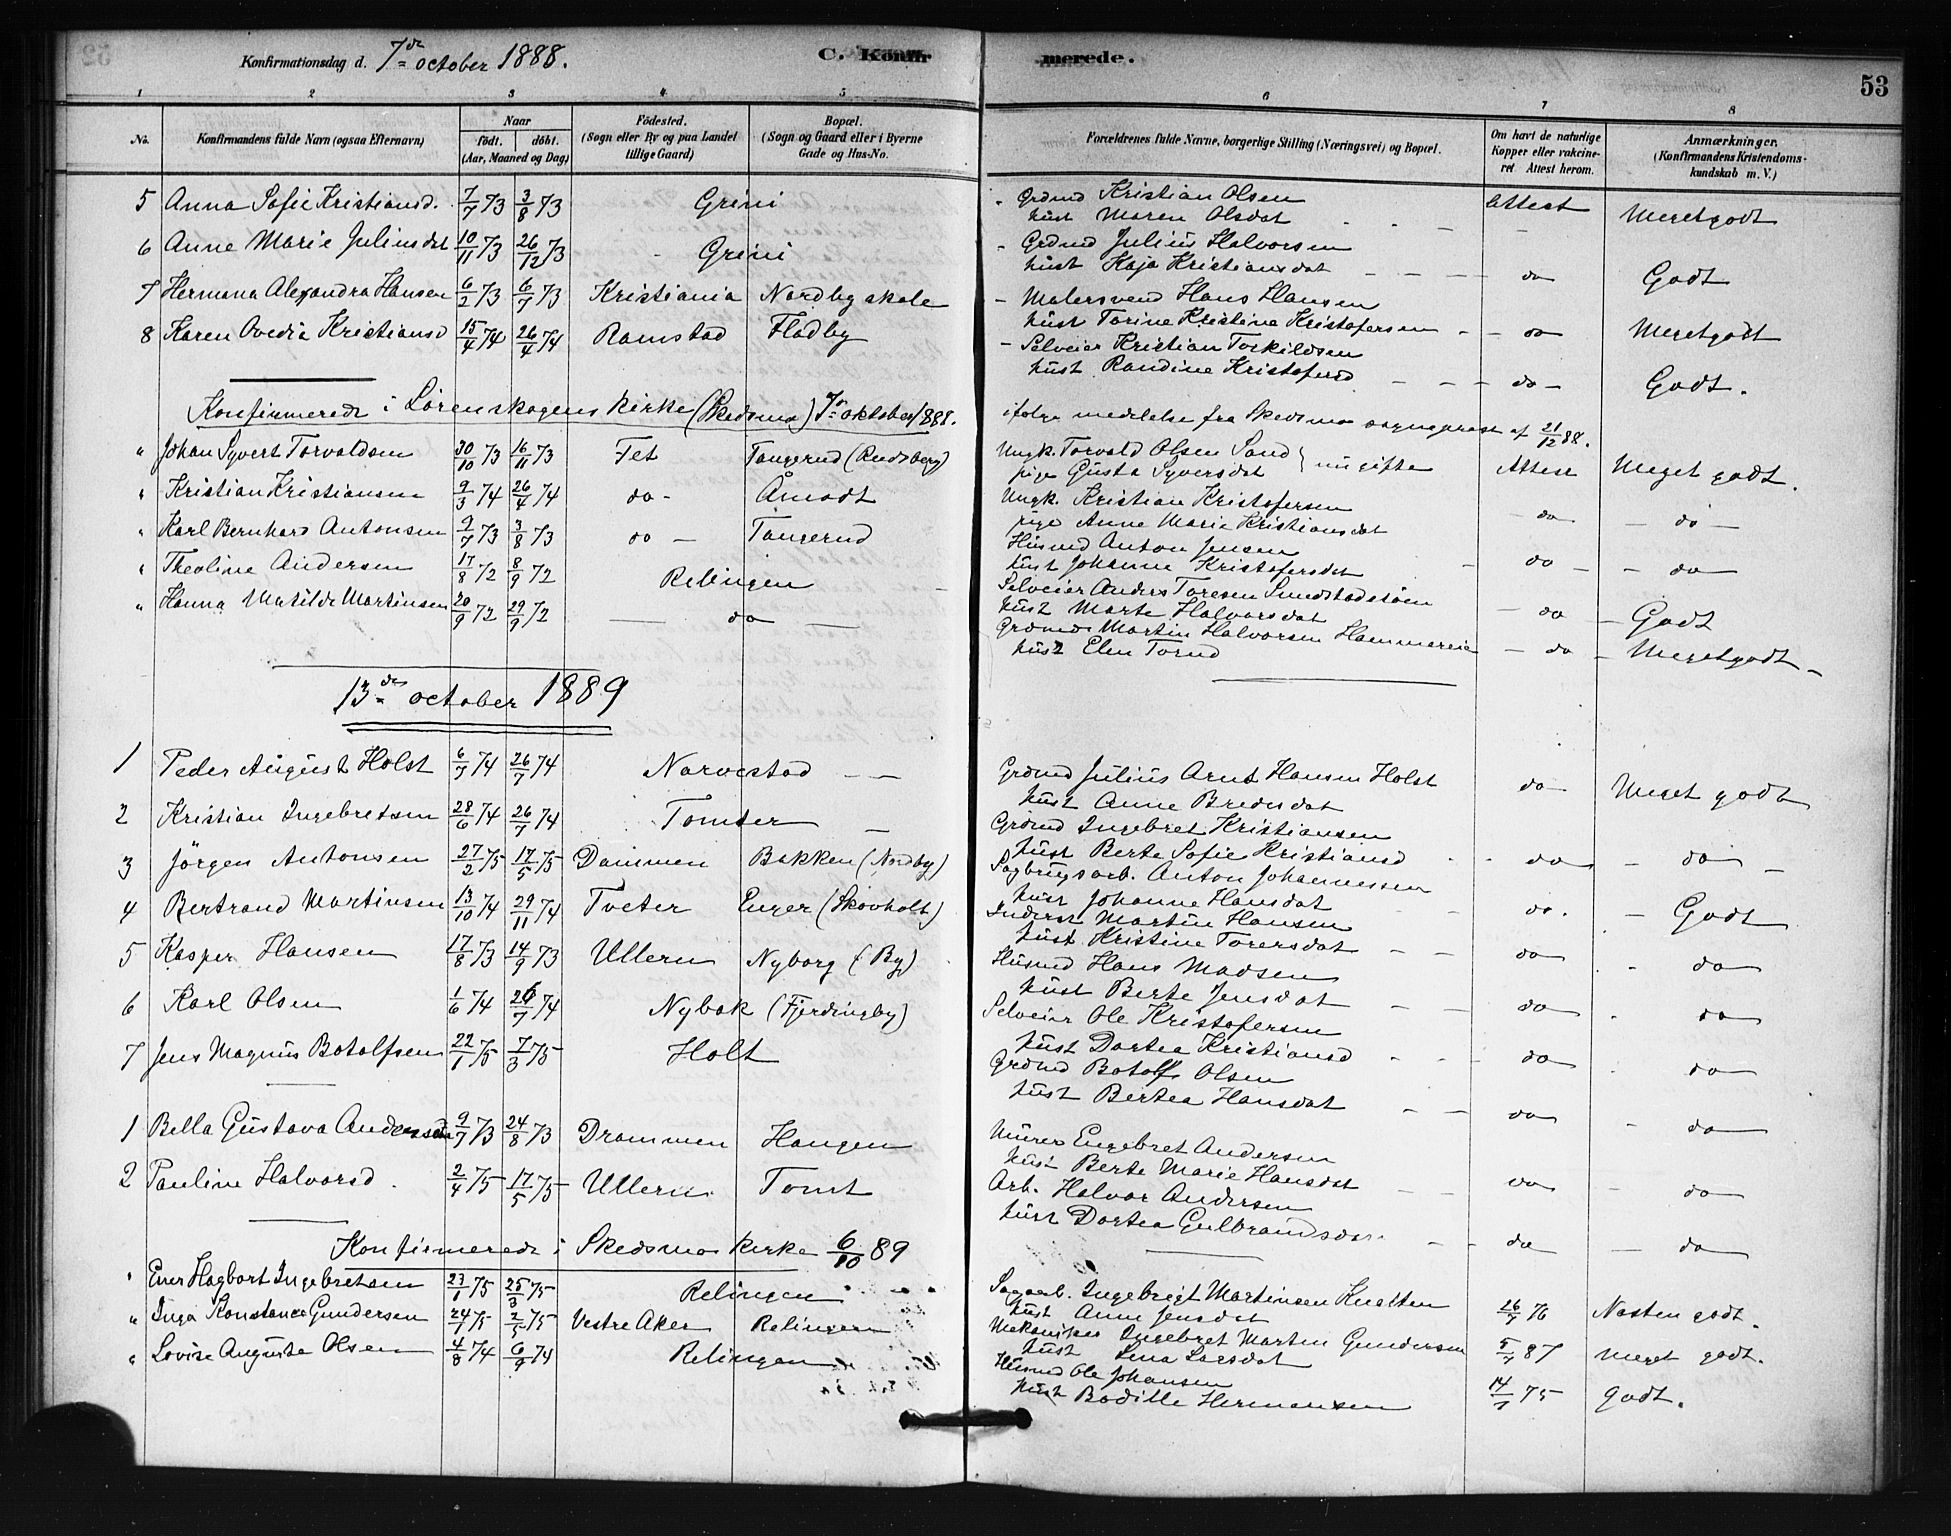 Konfirmationsdag d. 7de october 1888.
C. Konfirmerede.
53
1 2 3 4 5 6 7 8
No.
Konfirmandens fulde Navn (ogsaa Efternavn)
Naar
født. døbt.
(Aar, Maaned og Dag)
Fødested.
(Sogn eller By og paa Landet
tillige Gaard)
Bopæl.
(Sogn og Gaard eller i Byerne
Gade og Hus-No.
Forældrenes fulde Navne, borgerlige Stilling (Næringsvei) og Bopæl.
Om havt de naturlige
Kopper eller vakcine-
ret Attest herom.
Anmærkninger.
(Konfirmandens Kristendoms-
kundskab m. V.)
5 Anna Sofie Kristiansd. 7/7 73 3/8 73 Grini Grdmd Kristian Olsen
hust Maren Olsdat Attest Megetgodt
6 Anne Marie Juliusdat 10/11 73 26/12 73 Grini Grdmd Julius Halvorsen
hust Kaja Kristiansdat do Godt
7 Hermana Alexandra Hansen 6/2 73 6/7 73 Kristiania Nordby skole Malersvend Hans Hansen
hust Torine Kristine Kristofersen do Megetgodt
8 Karen Ovedia Kristiansd 15/4 74 26/4 74 Ramstad Fladby Selveier Kristian Torkildsen
hust Randine Kristofersd do Godt.
Konfirmerede i Lørenskogens kirke (Skedsmo) 7de oktober 1888. ifølge meddelelse fra Skedsmo sogneprest af 21/12 88.
" Johan Syvert Torvaldsen 30/10 73 16/11 73 Fet Tangerud (Rudsberg) Ungk. Torvald Olsen Sand
pige Gusta Syversdat } nu gifte Attest Meget godt.
" Kristian Kristiansen 9/3 74 26/4 74 do Åmodt Ungk. Kristian Kristofersen
pige Anne Marie Kristiansdat do do
" Karl Bernhard Antonsen 9/7 73 3/8 73 do Tangerud Husmd Anton Jensen
hust Johanne Kristofersdat do do
" Theoline Andersen 17/8 72 8/9 72 Relingen Selveier Anders Toresen Sundstadsøen
hust Marte Halvorsdat do Godt
" Hanna Matilde Martinsen 20/9 72 29/9 72 do Grdmd Martin Halvorsen Hammereie
hust Elen Torsd do Megetgodt
13de october 1889
1 Peder August Holst 6/7 74 26/7 74 Narvestad Grdmd Julius Arnt Hansen Holst
hust Anne Bredesdat do Meget godt
2 Kristian Ingebretsen 28/6 74 26/7 74 Tomter Grdmd Ingebret Kristiansen
hust Berte Sofie Kristiansd do do
3 Jørgen Antonsen 27/2 75 17/5 75 Dammen Bakken (Nordby) Sagbrugsarb. Anton Johannessen
hust Johanne Hansdat do. Godt
4 Bertrand Martinsen 13/10 74 29/11 74 Tveter Enger (Skovholt) Inderst Martin Hansen
hust Kristine Torersdat do do
5 Kasper Hansen 17/8 73 14/9 73 Ullern Nyborg (By) Husmd Hans Madsen
hust Berte Jensdat do do
6 Karl Olsen 1/6 74 26/7 74 Nybak (Fjerdingby) Selveier Ole Kristofersen
hust Dortea Kristiansd do do
7 Jens Magnus Botolfsen 22/1 75 7/3 75 Holt Grdmd Botolf Olsen
hust Bertea Hansdat do do
1 Bella Gustava Andersen 9/7 73 24/8 73 Drammen Haugen Murer Engebret Andersen
hust Berte Marie Hansdat do do
2 Pauline Halvorsd. 2/4 75 17/5 75 Ullern Tomt Arb. Halvor Andersen
hust Dortea Gulbrandsdat do do
Konfirmerede i Skedsmo kirke 6/10 89
" Einer Hagbart Ingebretsen 23/1 75 25/3 75 Relingen Sagarb. Ingebrigt Martinsen Knatten
hust Anne Jensdat 26/7 76 Næsten godt.
" Inga Konstance Gundersen 24/1 75 2/5 75 Vestre Aker Relingen Mekaniker Ingebret Martin Gundersen
hust Lena Larsdat 5/7 87 Meget godt.
" Lovise Auguste Olsen 4/8 74 6/9 74 Relingen Husmd Ole Johansen
hust Bodille Hermansen 14/7 75 Godt.